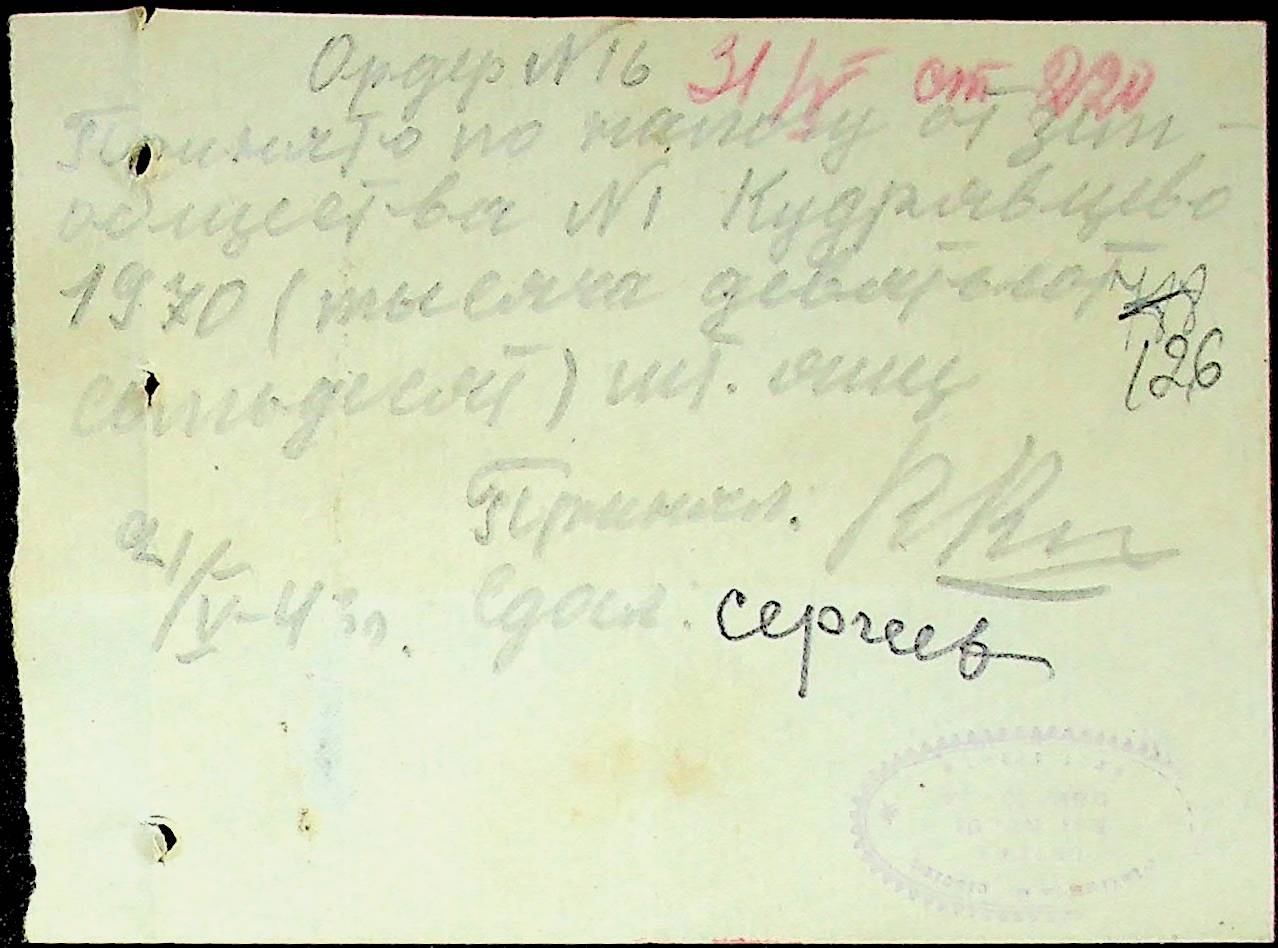 Ордер N 16 31/V от 220
Принято по налогу от зем-
общества N1 Кудрявцево
1970 (тысяча девятьсот
126
семьдесят) шт. яиц
Принял:
21/V-43 г. Сдал: Сергеев